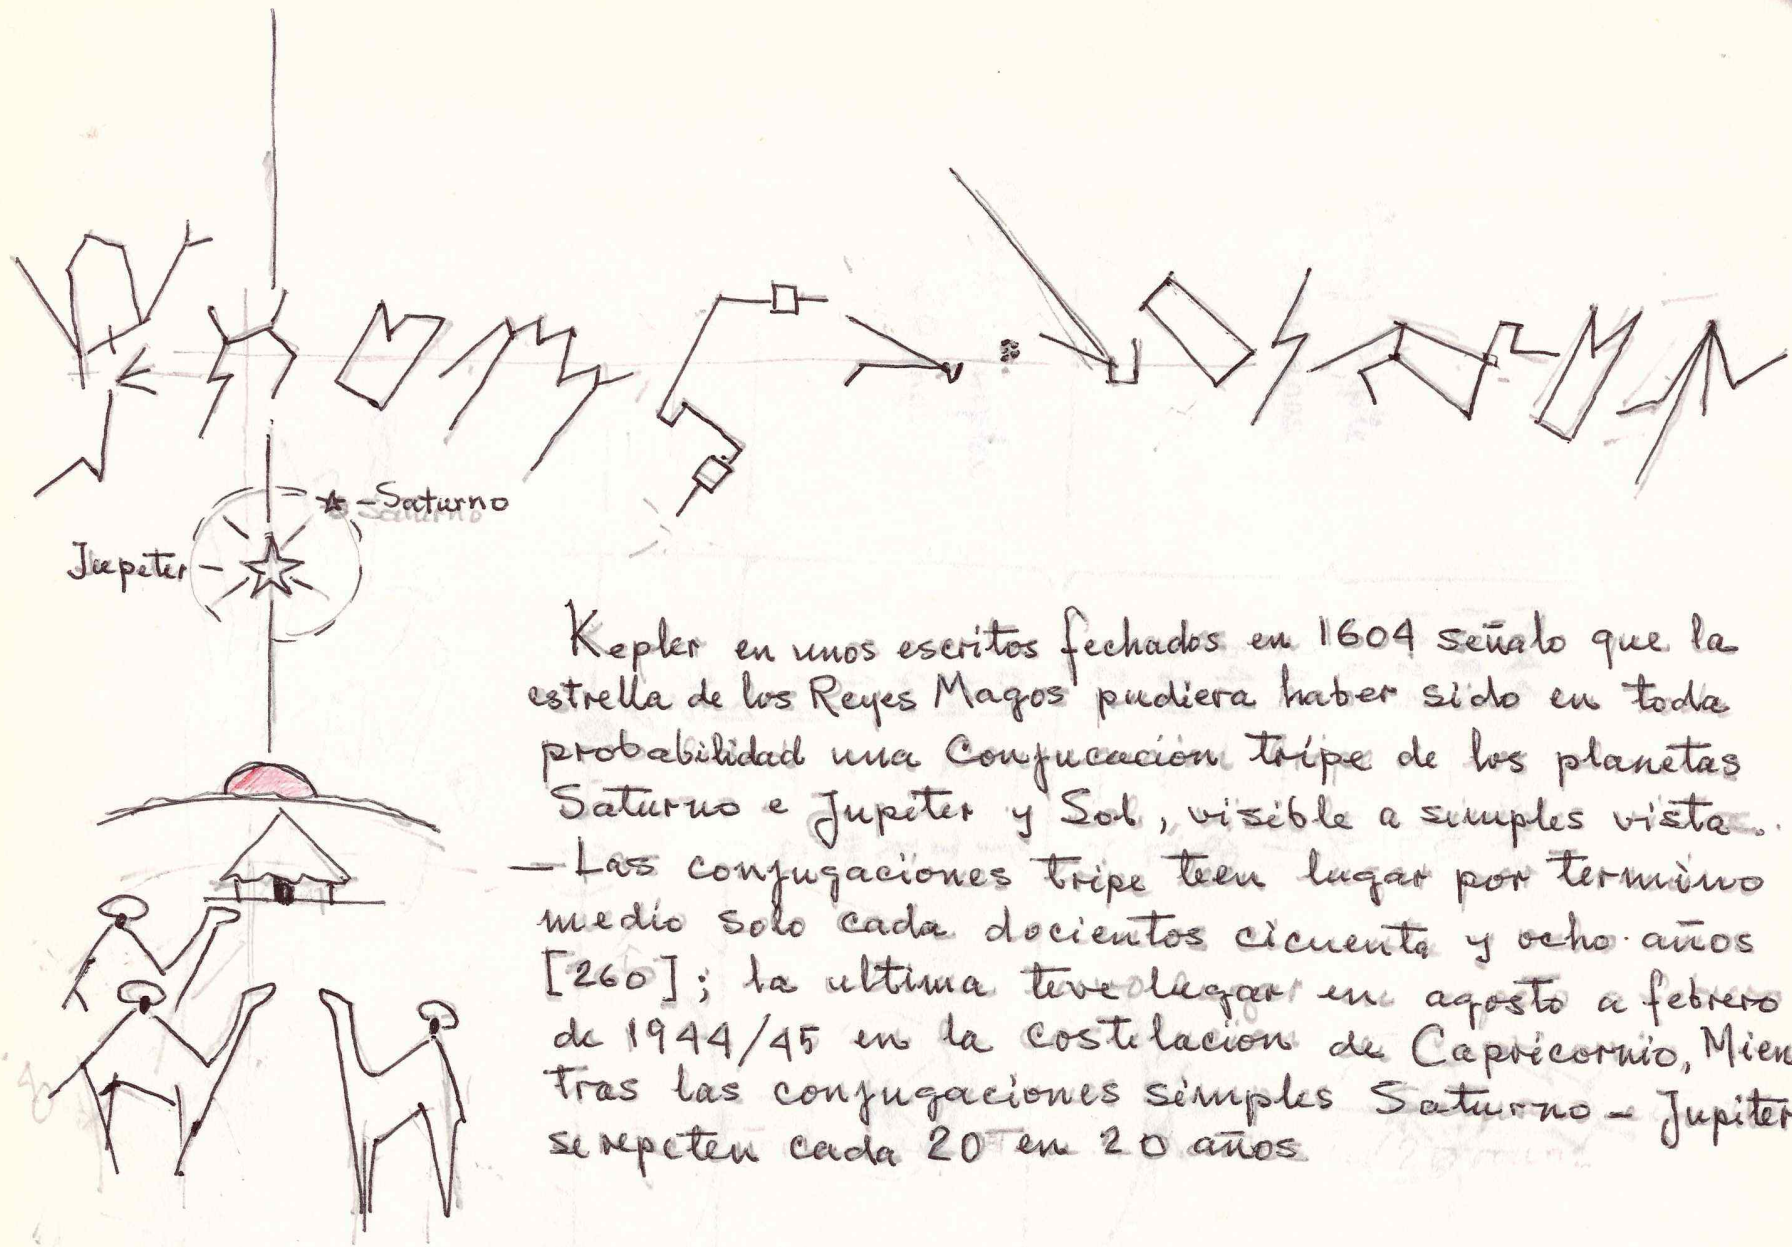 ☆-Saturno
Jupeter
Kepler en unos escritos fechados en 1604 señalo que la
estrella de los Reyes Magos pudiera haber sido en toda
probabilidad una Conjucación tripe de los planetas
Saturno e Jupeter y Sol, visible a simples vista.
— Las conjugaciones tripe teen lugar por termino
medio solo cada docientos cicuenta y ocho años
[260]; la ultima teve lugar en agosto a febrero
de 1944/45 en la costelacion de Capricornio, Mien
tras las conjugaciones simples Saturno - Jupiter
se repeten cada 20 en 20 años